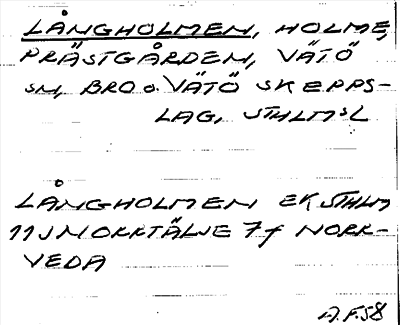 LÅNGHOLMEN, HOLME,
PRÄSTGÅRDEN, VÄTÖ
SN, BRO o. VÄTÖ SKEPPS-
LAG, STHLMSL
LÅNGHOLMEN EK STHLM
11J NORRTÄLJE 7f NORR-
VEDA
A.F.58